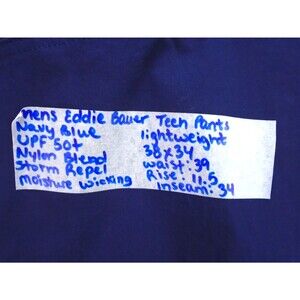 mens Eddie Bauer Tech Pants
Navy Blue lightweight
UPF 50+ 38x34
Nylon Blend waist: 39
Storm Repel Rise: 11.5
moisture wicking Inseam: 34